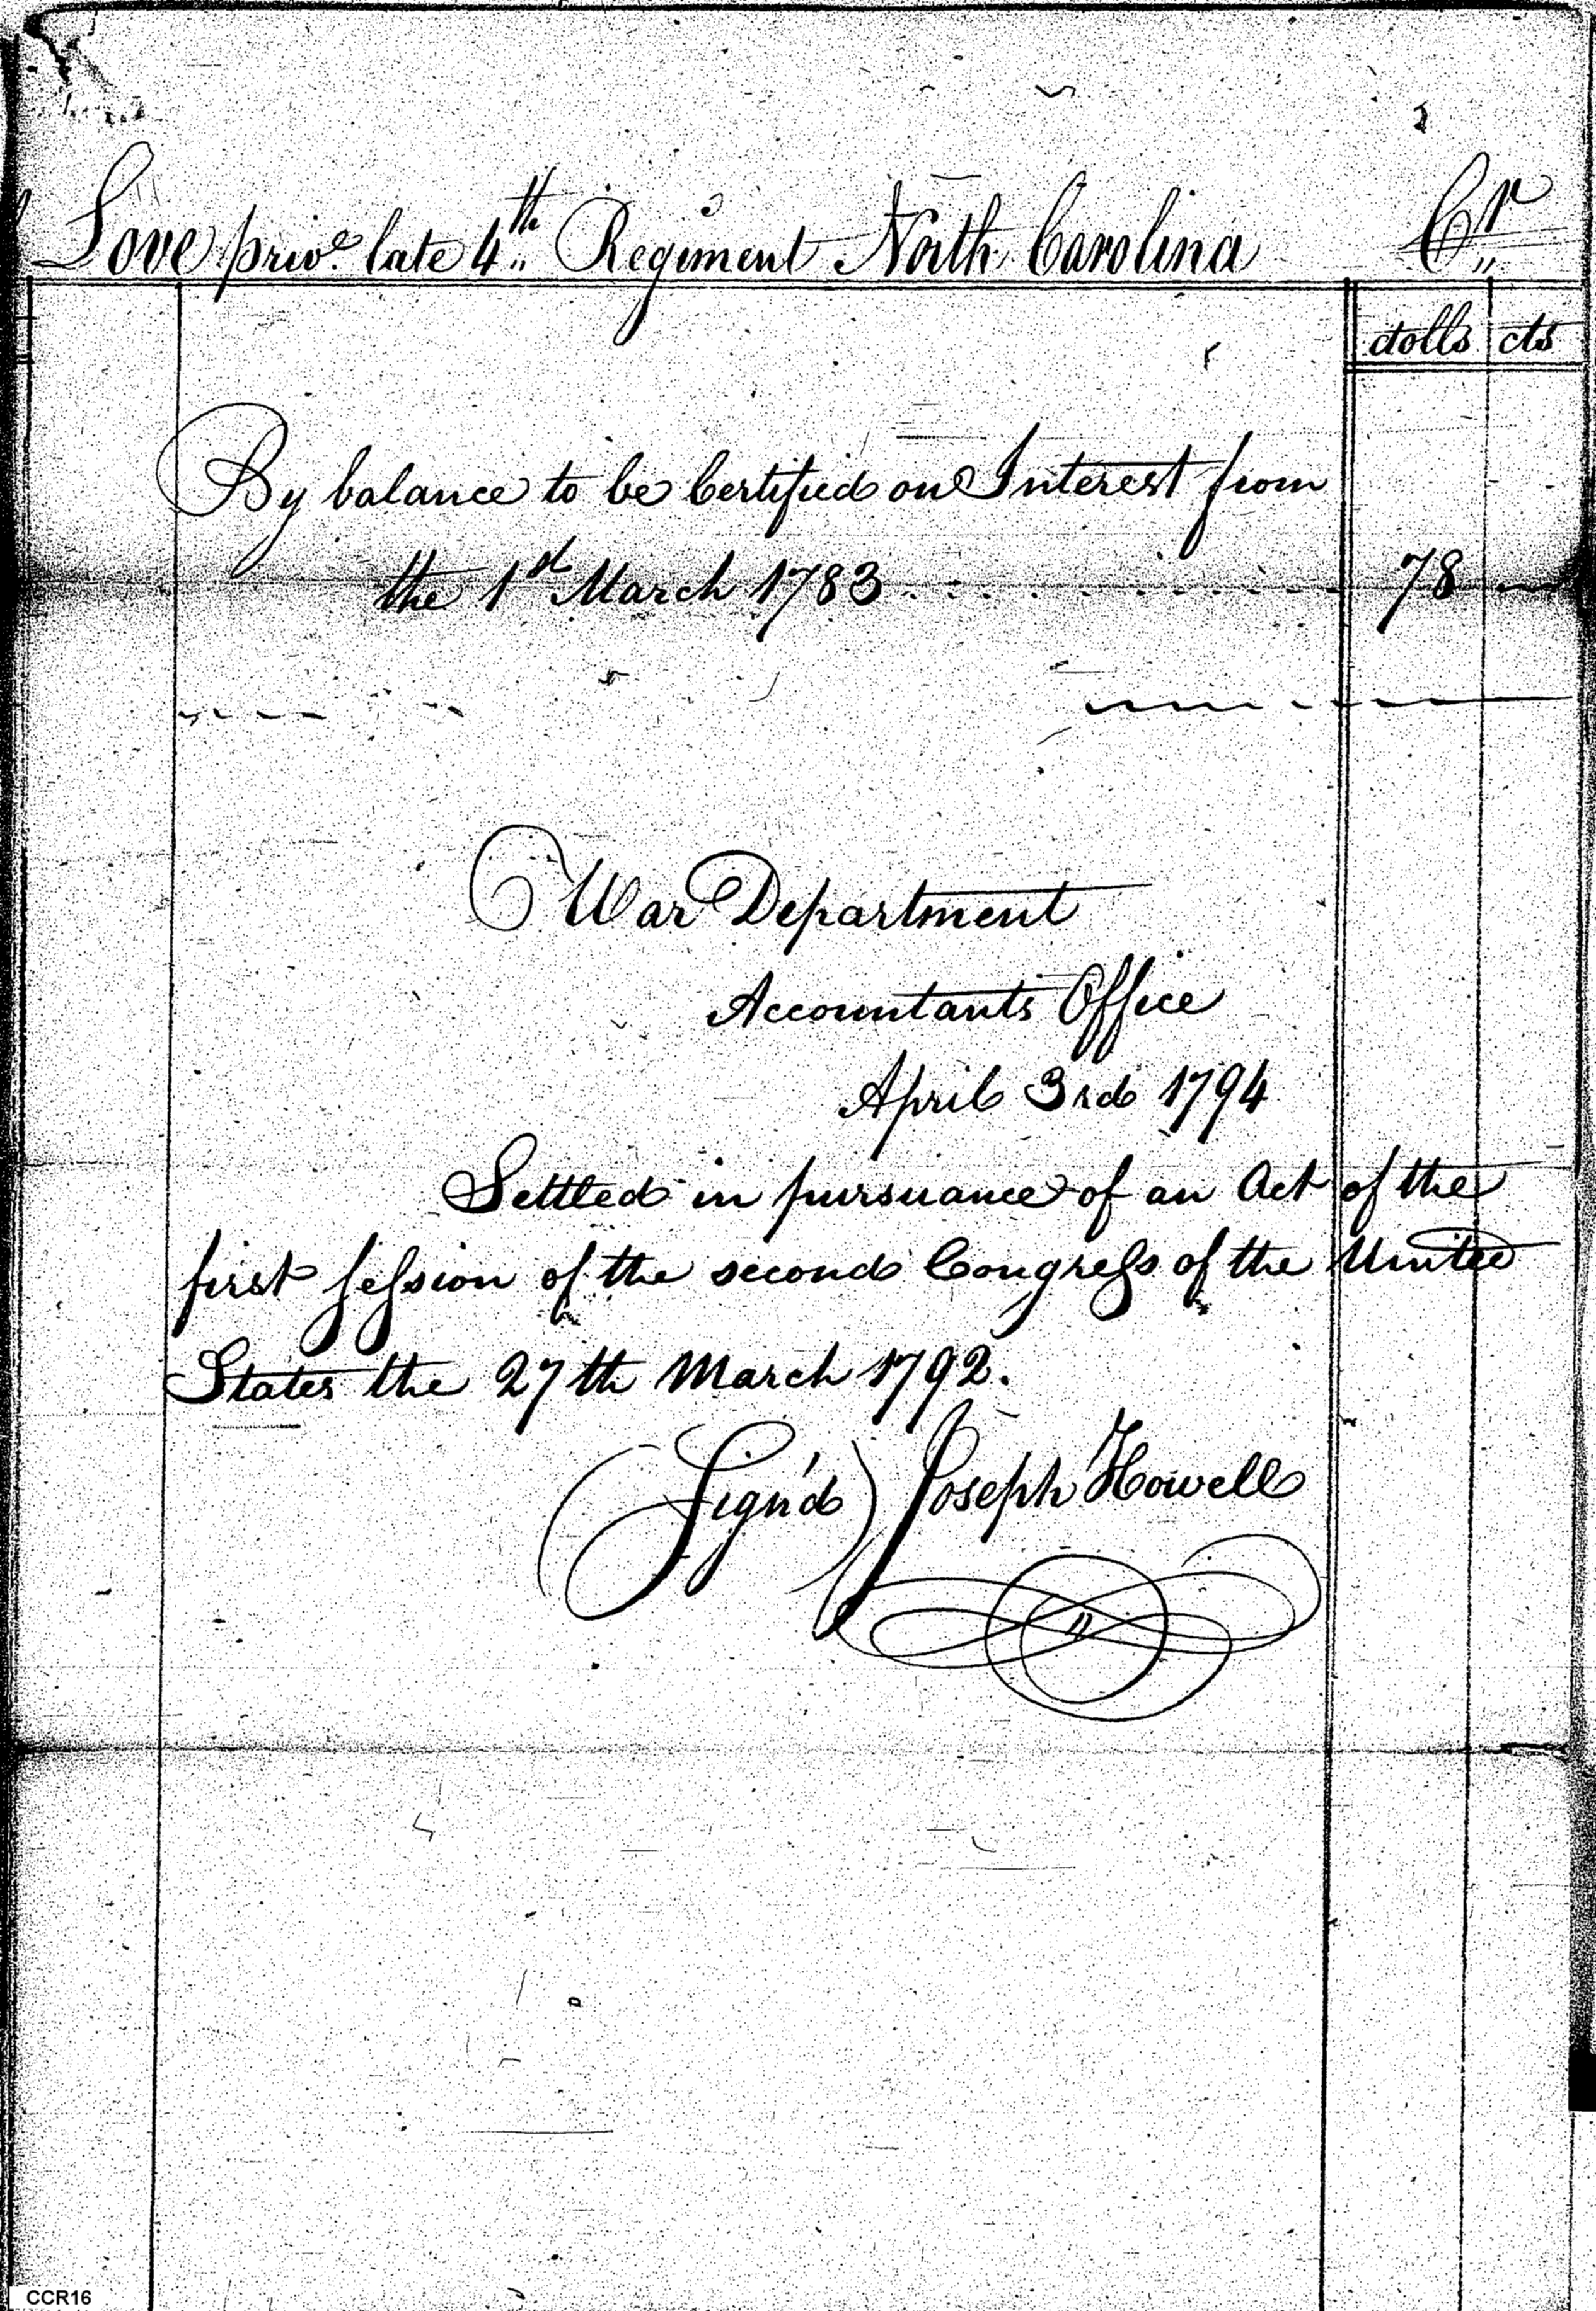 Love privᵉ late 4th Regiment North Carolina Cr
dolls cts
By balance to be Certified on Interest from
the 1st March 1783 . . . . . . . . . . 78
War Department
Accountants Office
April 3rd 1794
Settled in pursuance of an Act of the
first session of the second Congress of the United
States the 27th March 1792.
(Sign'd) Joseph Howell
CCR16